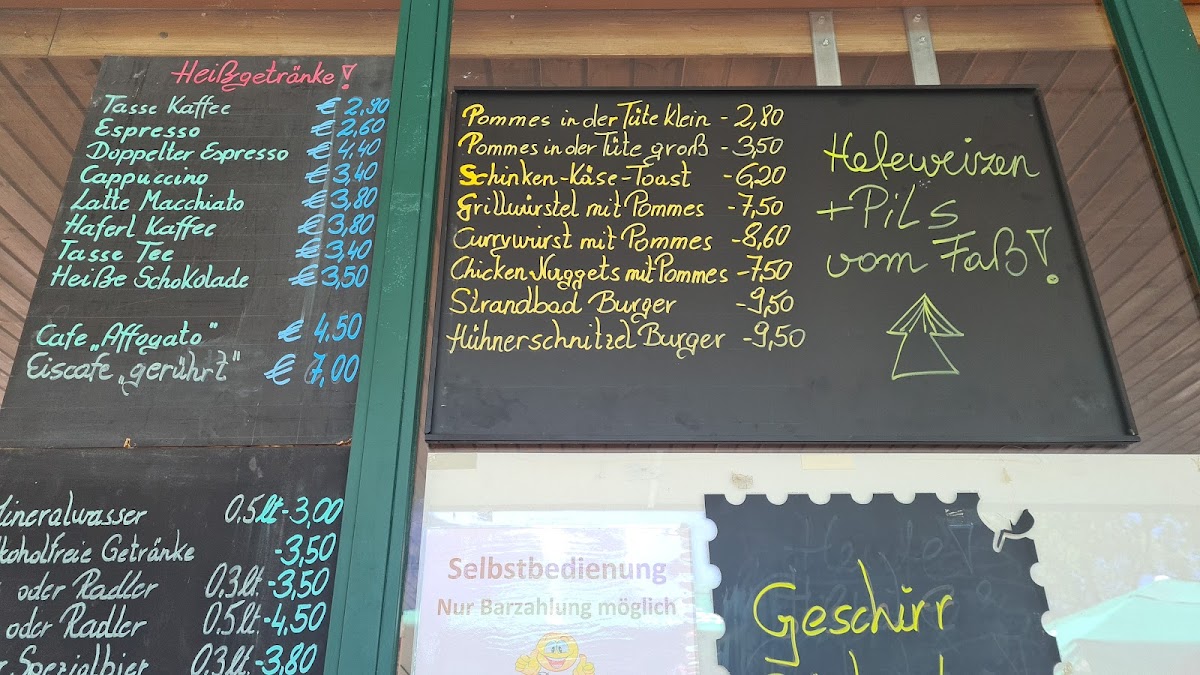 Heißgetränke!
Tasse Kaffee € 2,90
Espresso € 2,60
Doppelter Espresso € 4,40
Cappuccino € 3,40
Latte Macchiato € 3,80
Haferl Kaffee € 3,80
Tasse Tee € 3,40
Heiße Schokolade € 3,50
Cafe „Affogato" € 4.50
Eiscafe „gerührt" € 7,00
Mineralwasser 0.5lt - 3,00
Getränke - 3,50
oder Radler 0.3lt. - 3,50
oder Radler 0.5lt. - 4.50
Spezialbier 0.3lt. - 3,80
Pommes in der Tüte klein - 2,80
Pommes in der Tüte groß - 3,50
Schinken-Käse-Toast - 6,20
Grillwürstel mit Pommes - 7,50
Currywurst mit Pommes - 8,60
Chicken Nuggets mit Pommes - 7,50
Strandbad Burger - 9,50
Hühnerschnitzel Burger - 9,50
Hefeweizen
+ Pils
vom Faß!
Selbstbedienung
Nur Barzahlung möglich
Geschirr